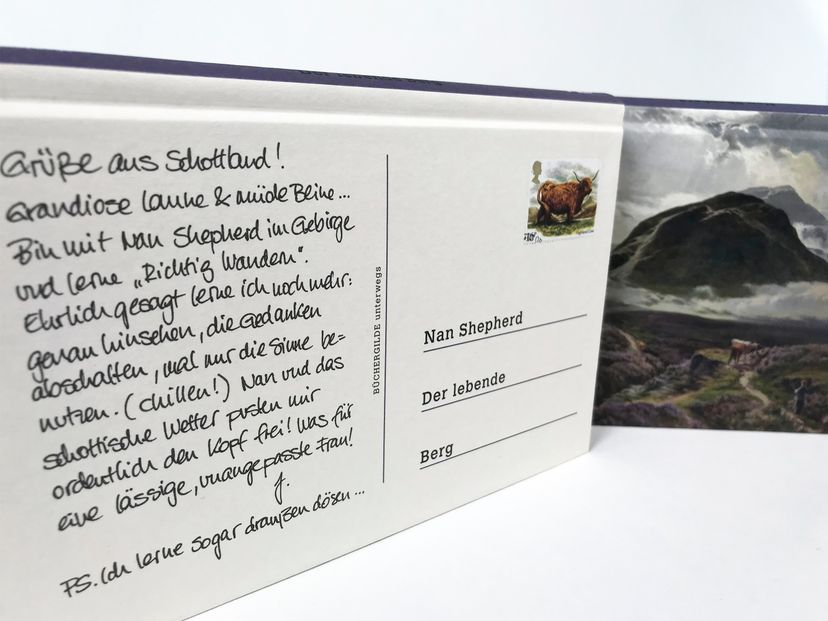 Grüße aus Schottland!
Grandiose Laune & müde Beine...
Bin mit Nan Shepherd im Gebirge
und lerne „Richtig Wandern".
Ehrlich gesagt lerne ich noch mehr:
genau hinsehen, die Gedanken
abschalten, mal nur die Sinne be=
nutzen. (chillen!) Nan und das
schottische Wetter pusten mir
ordentlich den Kopf frei! Was für
eine lässige, unangepasste Frau!
J.
PS. Ich lerne sogar draußen dösen...
BÜCHERGILDE unterwegs
Nan Shepherd
Der lebende
Berg